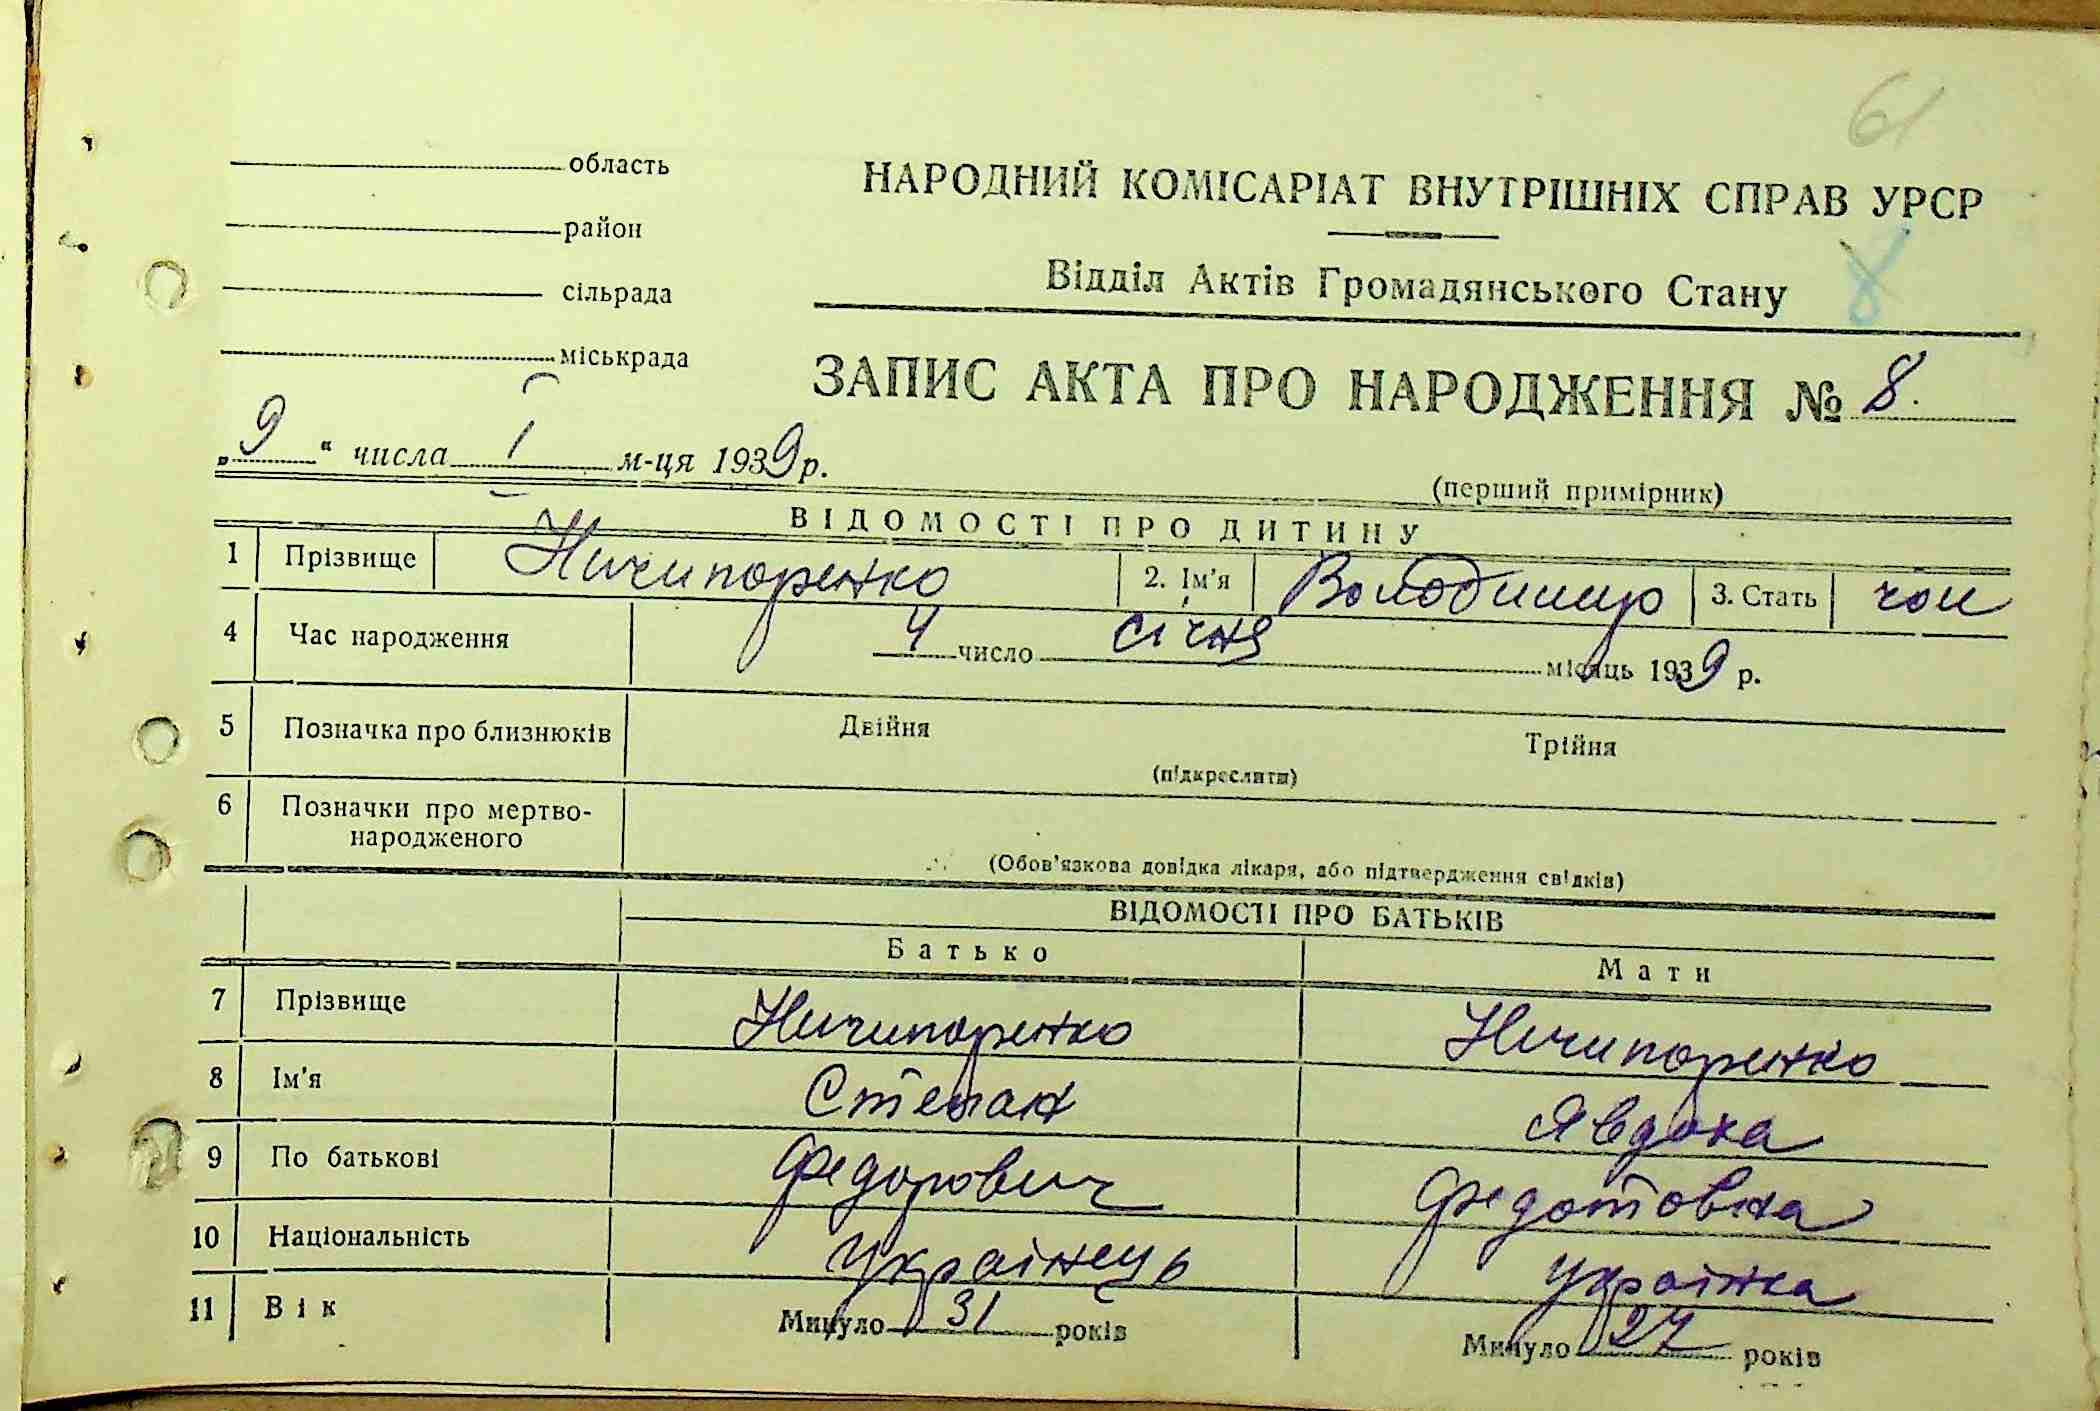 61
область
район
сільрада
міськрада
НАРОДНИЙ КОМІСАРІАТ ВНУТРІШНІХ СПРАВ УРСР
Відділ Актів Громадянського Стану
8
ЗАПИС АКТА ПРО НАРОДЖЕННЯ № 8.
„9“ числа І м-ця 1939 р.
(перший примірник)
ВІДОМОСТІ ПРО ДИТИНУ
1 Прізвище Ничипоренко 2. Ім'я Володимир 3. Стать чол
4 Час народження 4 число січня місяць 1939 р.
5 Позначка про близнюків Двійня Трійня
(підкреслити)
6 Позначки про мертво-
народженого
(Обов'язкова довідка лікаря, або підтвердження свідків)
ВІДОМОСТІ ПРО БАТЬКІВ
Батько Мати
7 Прізвище Ничипоренко Ничипоренко
8 Ім'я Степан Явдоха
9 По батькові Федорович Федотовна
10 Національність українець українка
11 Вік Минуло 31 років Минуло 27 років